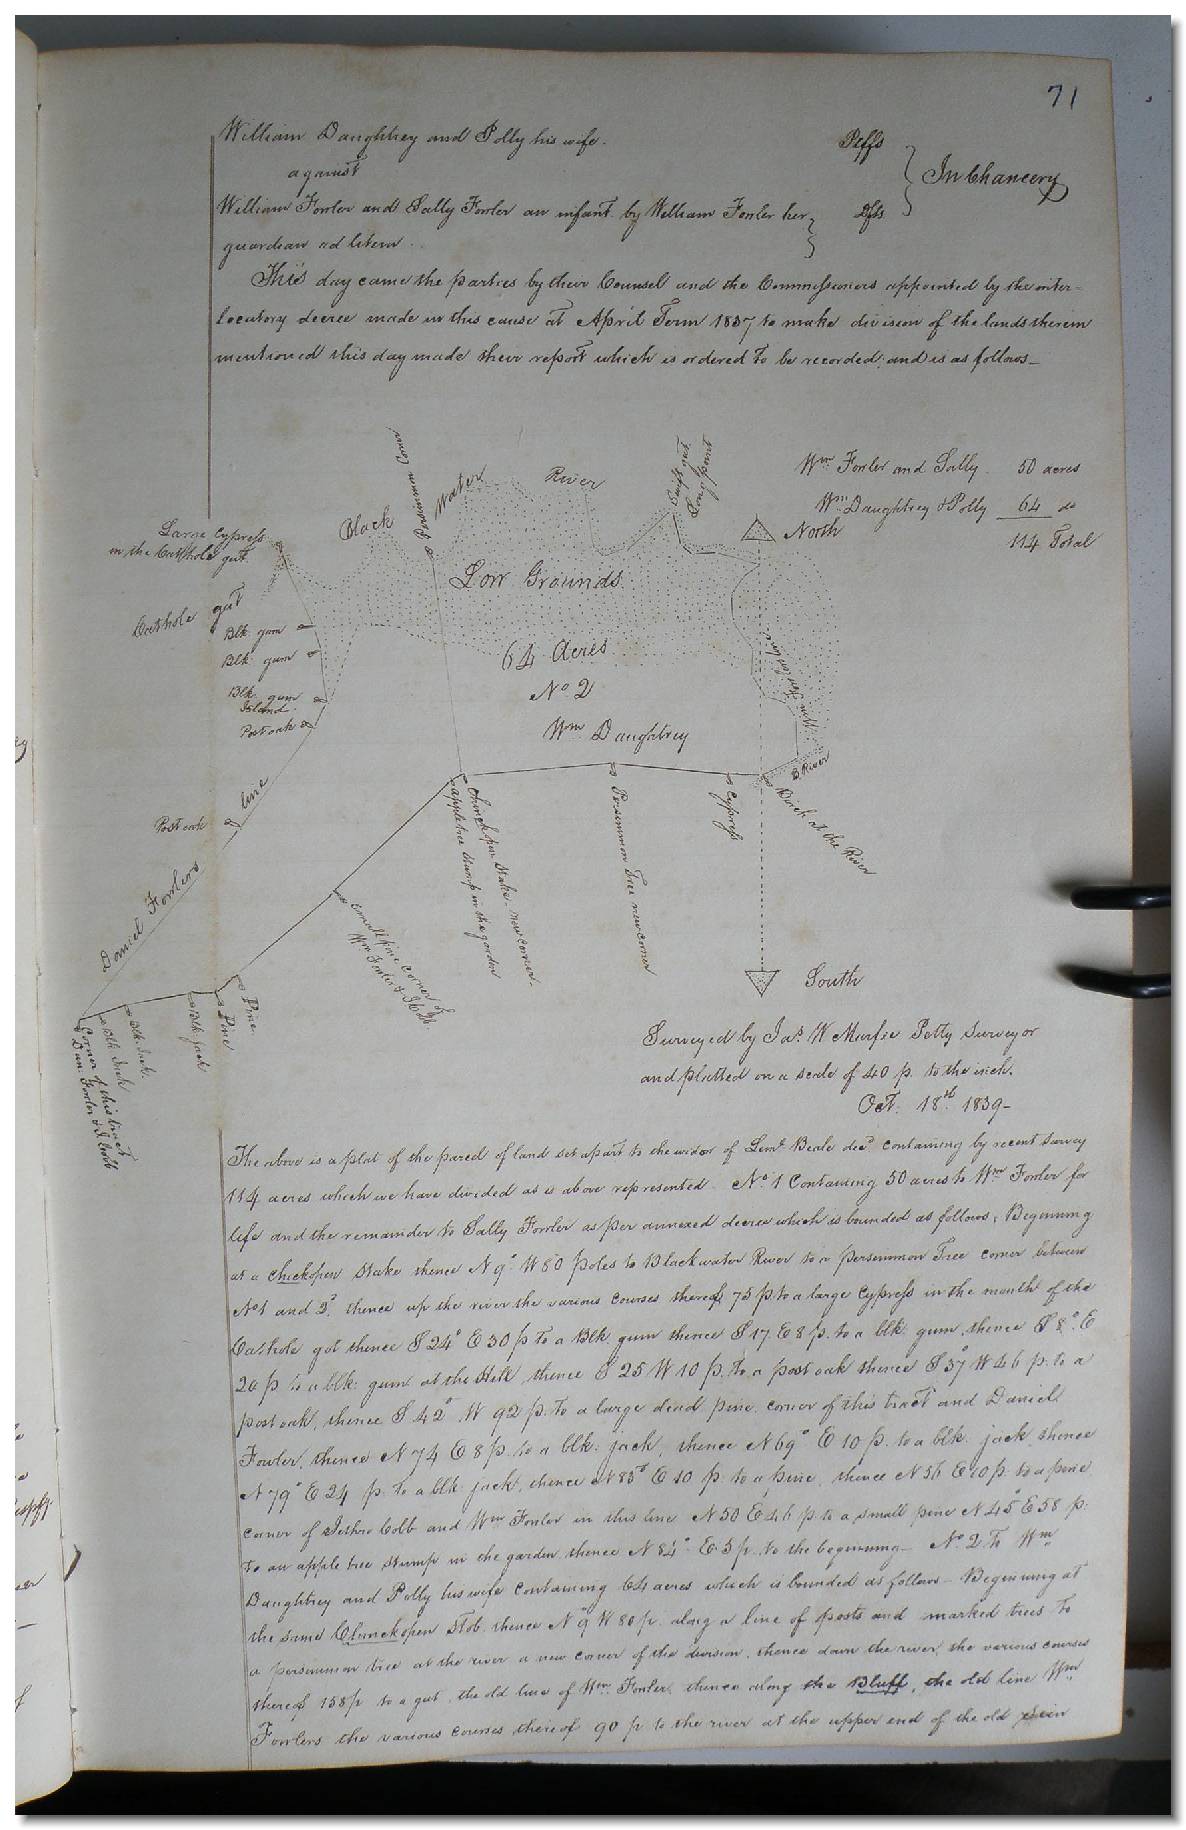 71
William Daughtrey and Polly his wife. Plffs
against
In Chancery
William Fowler and Sally Fowler an infant by William Fowler her Dfts
guardian ad litem.
This day came the parties by their Counsel and the Commissioners appointed by the inter-
locutory decree made in this cause at April Term 1837 to make division of the lands therein
mentioned this day made their report which is ordered to be recorded and is as follows—
Wm Fowler and Sally 50 acres
Wm Daughtrey & Polly 64 do
114 Total
Black Water River
Persimmon Corner
Long point
North
Large Cypress
in the Catthole gut
Low Grounds
Catthole gut
Blk. gum
Blk. gum
Blk. gum
Island
Post oak
64 Acres
No 2
Wm Daughtrey
B. River
Birch at the River
Cypress
Persimmon Tree new corner
Chinckopen Stake. new corner.
apple tree stump in the garden
Post oak
Daniel Fowlers line
small pine corner of
Wm Fowler &
Pine
Pine
Blk. Jack
Blk. Jack.
Blk. Jack
Corner of this tract
Dan. Fowler & J. Cobb
South
Surveyed by Jas. W Murfee Petty Surveyor
and platted on a scale of 40 p. to the inch.
Oct. 18th 1839—
The above is a plat of the parcel of land set apart to the widow of Leml Beale decd containing by recent survey
114 acres which we have divided as is above represented. No. 1 Containing 50 acres to Wm Fowler for
life and the remainder to Sally Fowler as per annexed decree which is bounded as follows, Beginning
at a chickopen Stake thence N 9° W 80 poles to Blackwater River to a persimmon Tree corner between
No 1 and 2. thence up the river the various courses thereof 75 p. to a large Cypress in the mouth of the
Cathole gut thence S 24° E 30 p to a Blk gum thence S 17. E 8 p. to a blk. gum, thence S 8° E
20 p to a blk. gum at the thence S 25 W 10 p. to a post oak thence S 37° W 46 p. to a
post oak, thence S 42° W 92 p. to a large dead pine, corner of this tract and Daniel
Fowler, thence N 74 E 8 p. to a blk. jack, thence N 69° E 10 p. to a blk. jack, thence
N 79° E 24 p. to a blk. jack, thence N 85° E 10 p. to a pine, thence N 56 E 10 p. to a pine
corner of Jethro Cobb and Wm Fowler in this line N 50 E 46 p to a small pine N 45° E 58 p.
to an apple tree stump in the garden thence N 84° E 5 p. to the beginning— No. 2 To Wm
Daughtrey and Polly his wife containing 64 acres which is bounded as follows— Beginning at
the same Chinckopen Stob. thence N 9° W 80 p. along a line of posts and marked trees to
a persimmon tree at the river a new corner of the division, thence down the river, the various courses
thereof 158 p to a gut, the old line of Wm Fowler, thence along the Bluff, the old line Wm
Fowlers the various courses thereof 90 p. to the river at the upper end of the old